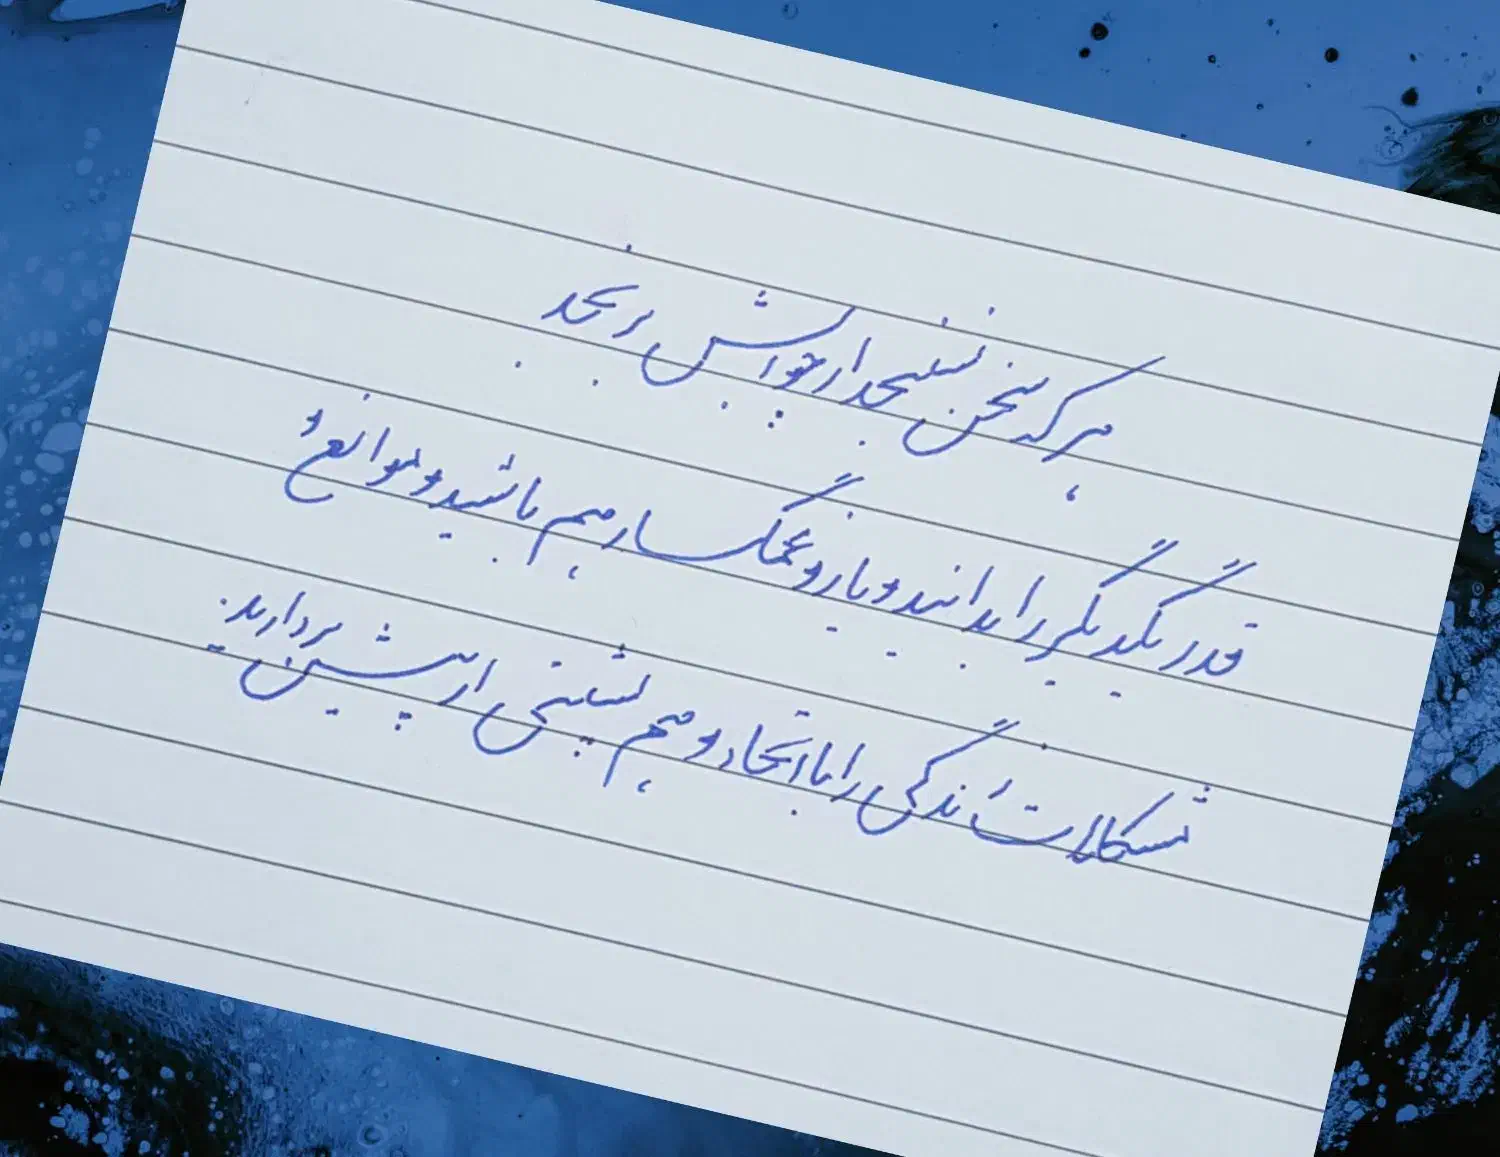 هر که سخن نسنجد از جوابش برنجد
قدر یکدیگر را بدانید و یار و غمگسار هم باشید و موانع و
مشکلات زندگی را با اتحاد و هم نشینی از پیش بردارید.